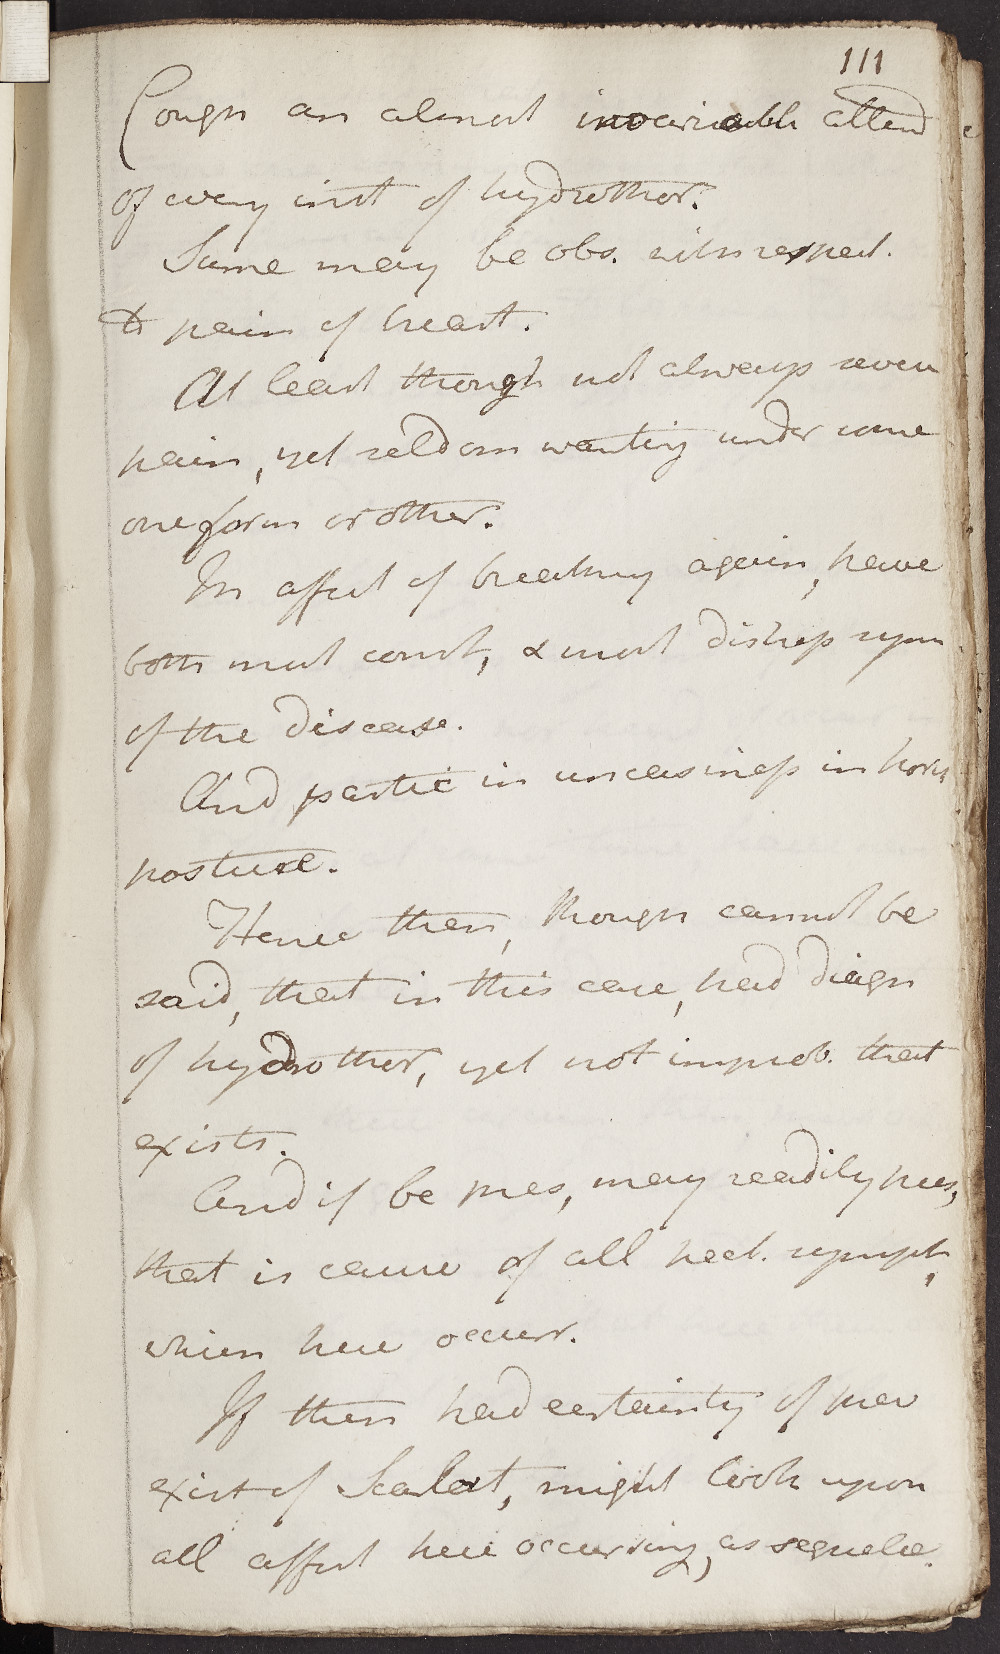 111
Cough an almost invariable attend
of every inst of hydrothor.
Same may be obs. with respect.
to pain of breast.
At least though not always severe
pain, yet seldom wanting under some
one form or other.
In affect of breathing again, have
both most const, & most distress sym
of the disease.
And partic in uneasiness in horiz
posture.
Hence then, though cannot be
said, that in this case, had diagn
of hydrothor, yet not improb. that
exists.
And if be pres, may readily pres,
that is cause of all pect. sympt,
which here occurr.
If then had certainty of prev
exist of Scarlat, might look upon
all affect here occurring, as sequelae.